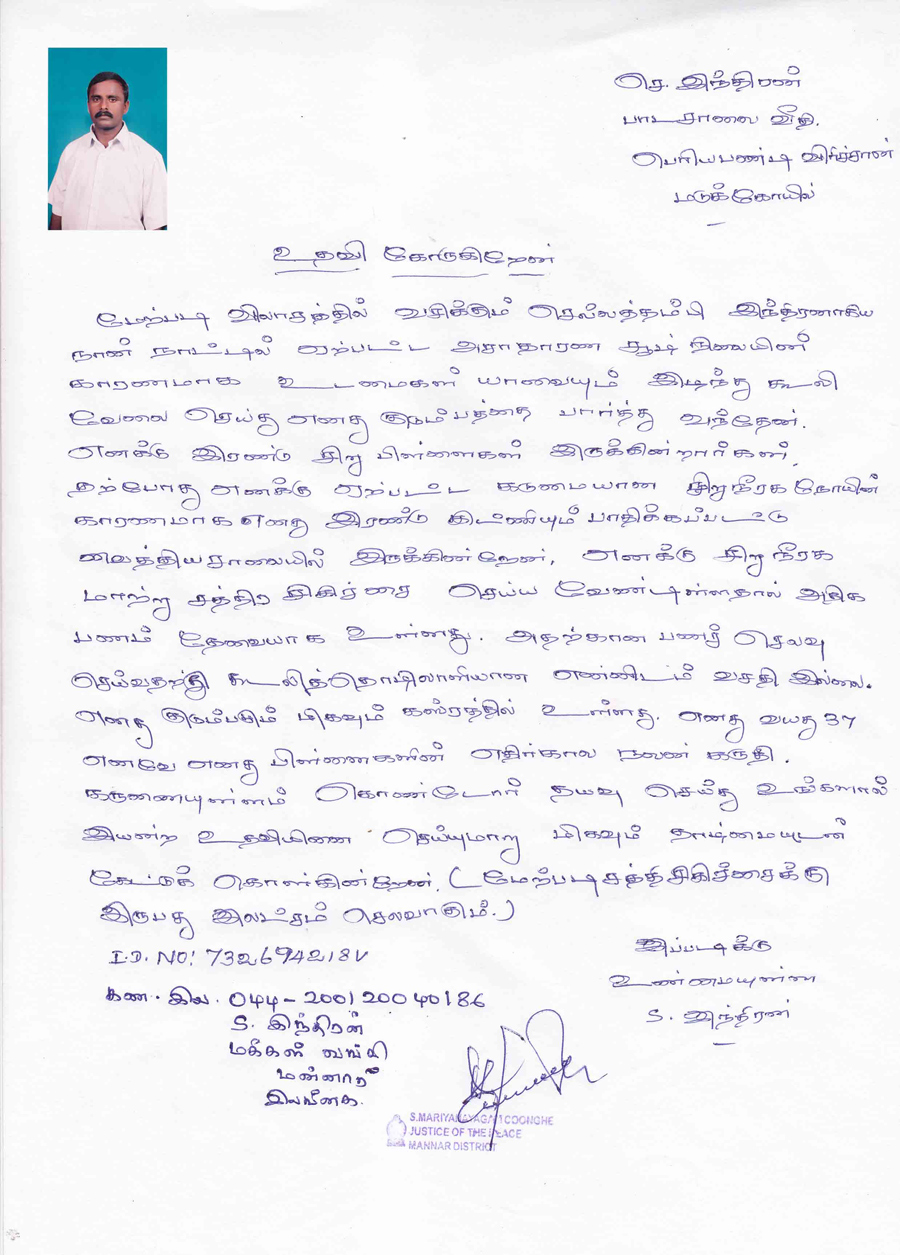 செ. இந்திரன்
பாடசாலை வீதி,
பெரியபண்டி விரிச்சான்
மடுக்கோயில்
உதவி கோருகிறேன்
மேற்படி விலாசத்தில் வசிக்கும் செல்லத்தம்பி இந்திரனாகிய
நான் நாட்டில் ஏற்பட்ட அசாதாரண சூழ் நிலையின்
காரணமாக உடமைகள் யாவையும் இழந்து கூலி
வேலை செய்து எனது குடும்பத்தை பார்த்து வந்தேன்.
எனக்கு இரண்டு சிறு பிள்ளைகள் இருக்கின்றார்கள்.
தற்போது எனக்கு ஏற்பட்ட கடுமையான சிறுநீரக நோயின்
காரணமாக எனது இரண்டு கிட்ணியும் பாதிக்கப்பட்டு
வைத்தியசாலையில் இருக்கின்றேன், எனக்கு சிறுநீரக
மாற்று சத்திர சிகிச்சை செய்ய வேண்டியுள்ளதால் அதிக
பணம் தேவையாக உள்ளது. அதற்கான பணச் செலவு
செய்வதற்கு கூலித்தொழிலாளியான என்னிடம் வசதி இல்லை.
எனது குடும்பமும் மிகவும் கஸ்ரத்தில் உள்ளது. எனது வயது 37
எனவே எனது பிள்ளைகளின் எதிர்கால நலன் கருதி.
கருணையுள்ளம் கொண்டோர் தயவு செய்து உங்களால்
இயன்ற உதவியினை செய்யுமாறு மிகவும் தாழ்மையுடன்
கேட்டுக் கொள்கின்றேன். (மேற்படி சத்திசிகிச்சைக்கு
இருபது இலட்சம் செலவாகும்.)
I.D. NO: 732694218V
இப்படிக்கு
உண்மையுள்ள
S. இந்திரன்
கண. இல. 044-200120040186
S. இந்திரன்
மக்கள் வங்கி
மன்னார்
இலங்கை.
S.MARIYANAYAGAM COONGHE
JUSTICE OF THE PEACE
MANNAR DISTRICT